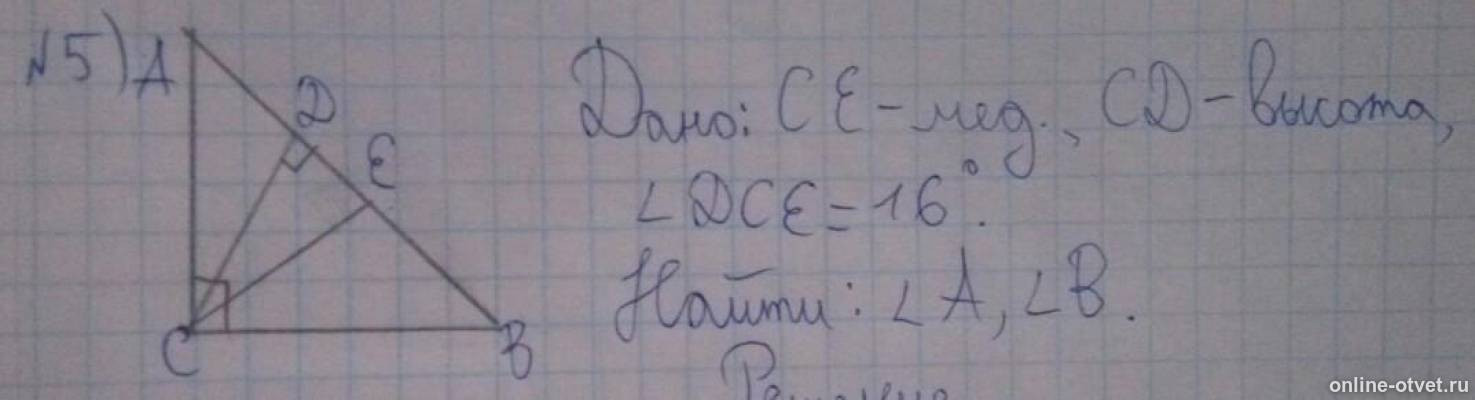 №5) A
D
E
C
B
Дано: CE - мед., CD - высота,
∠DCE = 16°.
Найти: ∠A, ∠B.
online-otvet.ru